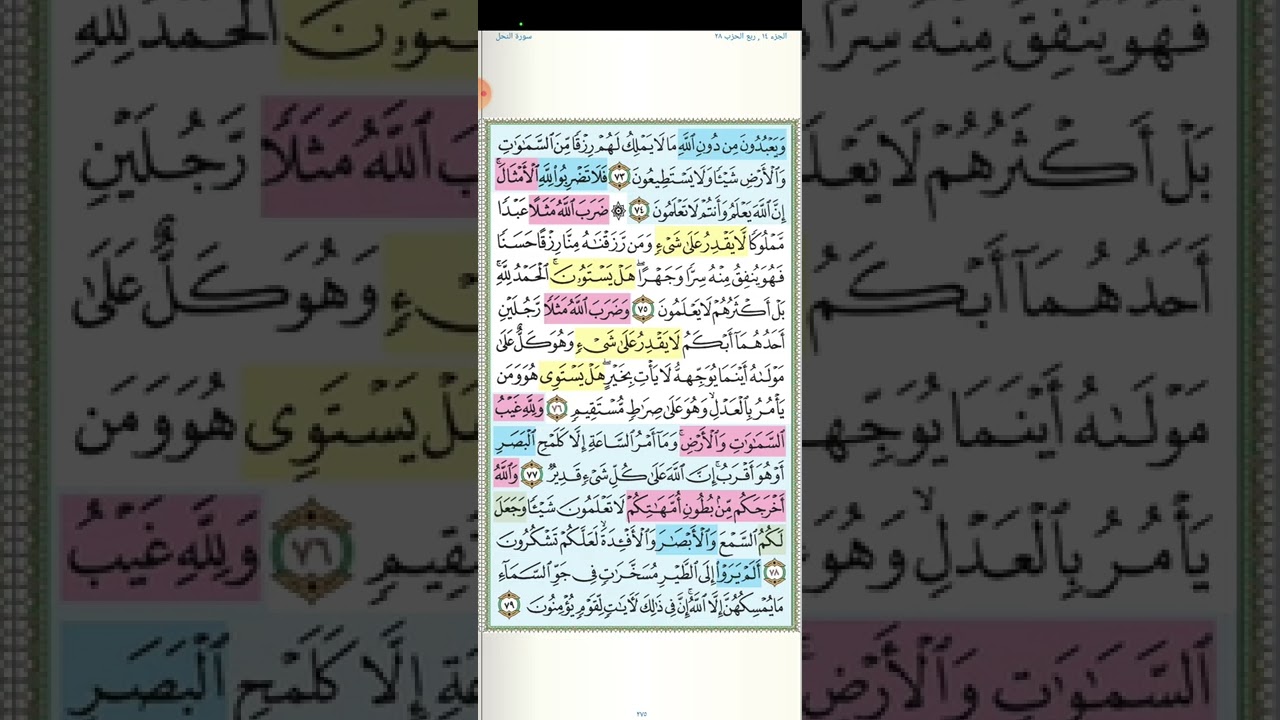 الجزء ١٤ , ربع الحزب ٢٨
سورة النحل
وَيَعْبُدُونَ مِن دُونِ ٱللَّهِ مَا لَا يَمْلِكُ لَهُمْ رِزْقًا مِّنَ ٱلسَّمَٰوَٰتِ
وَٱلْأَرْضِ شَيْـًٔا وَلَا يَسْتَطِيعُونَ ٧٣ فَلَا تَضْرِبُوا۟ لِلَّهِ ٱلْأَمْثَالَ ۚ
إِنَّ ٱللَّهَ يَعْلَمُ وَأَنتُمْ لَا تَعْلَمُونَ ٧٤ ۞ ضَرَبَ ٱللَّهُ مَثَلًا عَبْدًا
مَّمْلُوكًا لَّا يَقْدِرُ عَلَىٰ شَىْءٍ وَمَن رَّزَقْنَٰهُ مِنَّا رِزْقًا حَسَنًا
فَهُوَ يُنفِقُ مِنْهُ سِرًّا وَجَهْرًا ۖ هَلْ يَسْتَوُۥنَ ۚ ٱلْحَمْدُ لِلَّهِ ۚ
بَلْ أَكْثَرُهُمْ لَا يَعْلَمُونَ ٧٥ وَضَرَبَ ٱللَّهُ مَثَلًا رَّجُلَيْنِ
أَحَدُهُمَآ أَبْكَمُ لَا يَقْدِرُ عَلَىٰ شَىْءٍ وَهُوَ كَلٌّ عَلَىٰ
مَوْلَىٰهُ أَيْنَمَا يُوَجِّههُّ لَا يَأْتِ بِخَيْرٍ ۖ هَلْ يَسْتَوِى هُوَ وَمَن
يَأْمُرُ بِٱلْعَدْلِ ۙ وَهُوَ عَلَىٰ صِرَٰطٍ مُّسْتَقِيمٍ ٧٦ وَلِلَّهِ غَيْبُ
ٱلسَّمَٰوَٰتِ وَٱلْأَرْضِ ۚ وَمَآ أَمْرُ ٱلسَّاعَةِ إِلَّا كَلَمْحِ ٱلْبَصَرِ
أَوْ هُوَ أَقْرَبُ ۚ إِنَّ ٱللَّهَ عَلَىٰ كُلِّ شَىْءٍ قَدِيرٌ ٧٧ وَٱللَّهُ
أَخْرَجَكُم مِّنۢ بُطُونِ أُمَّهَٰتِكُمْ لَا تَعْلَمُونَ شَيْـًٔا وَجَعَلَ
لَكُمُ ٱلسَّمْعَ وَٱلْأَبْصَٰرَ وَٱلْأَفْـِٔدَةَ ۙ لَعَلَّكُمْ تَشْكُرُونَ
٧٨ أَلَمْ يَرَوْا۟ إِلَى ٱلطَّيْرِ مُسَخَّرَٰتٍ فِى جَوِّ ٱلسَّمَآءِ
مَا يُمْسِكُهُنَّ إِلَّا ٱللَّهُ ۗ إِنَّ فِى ذَٰلِكَ لَءَايَٰتٍ لِّقَوْمٍ يُؤْمِنُونَ ٧٩
٢٧٥